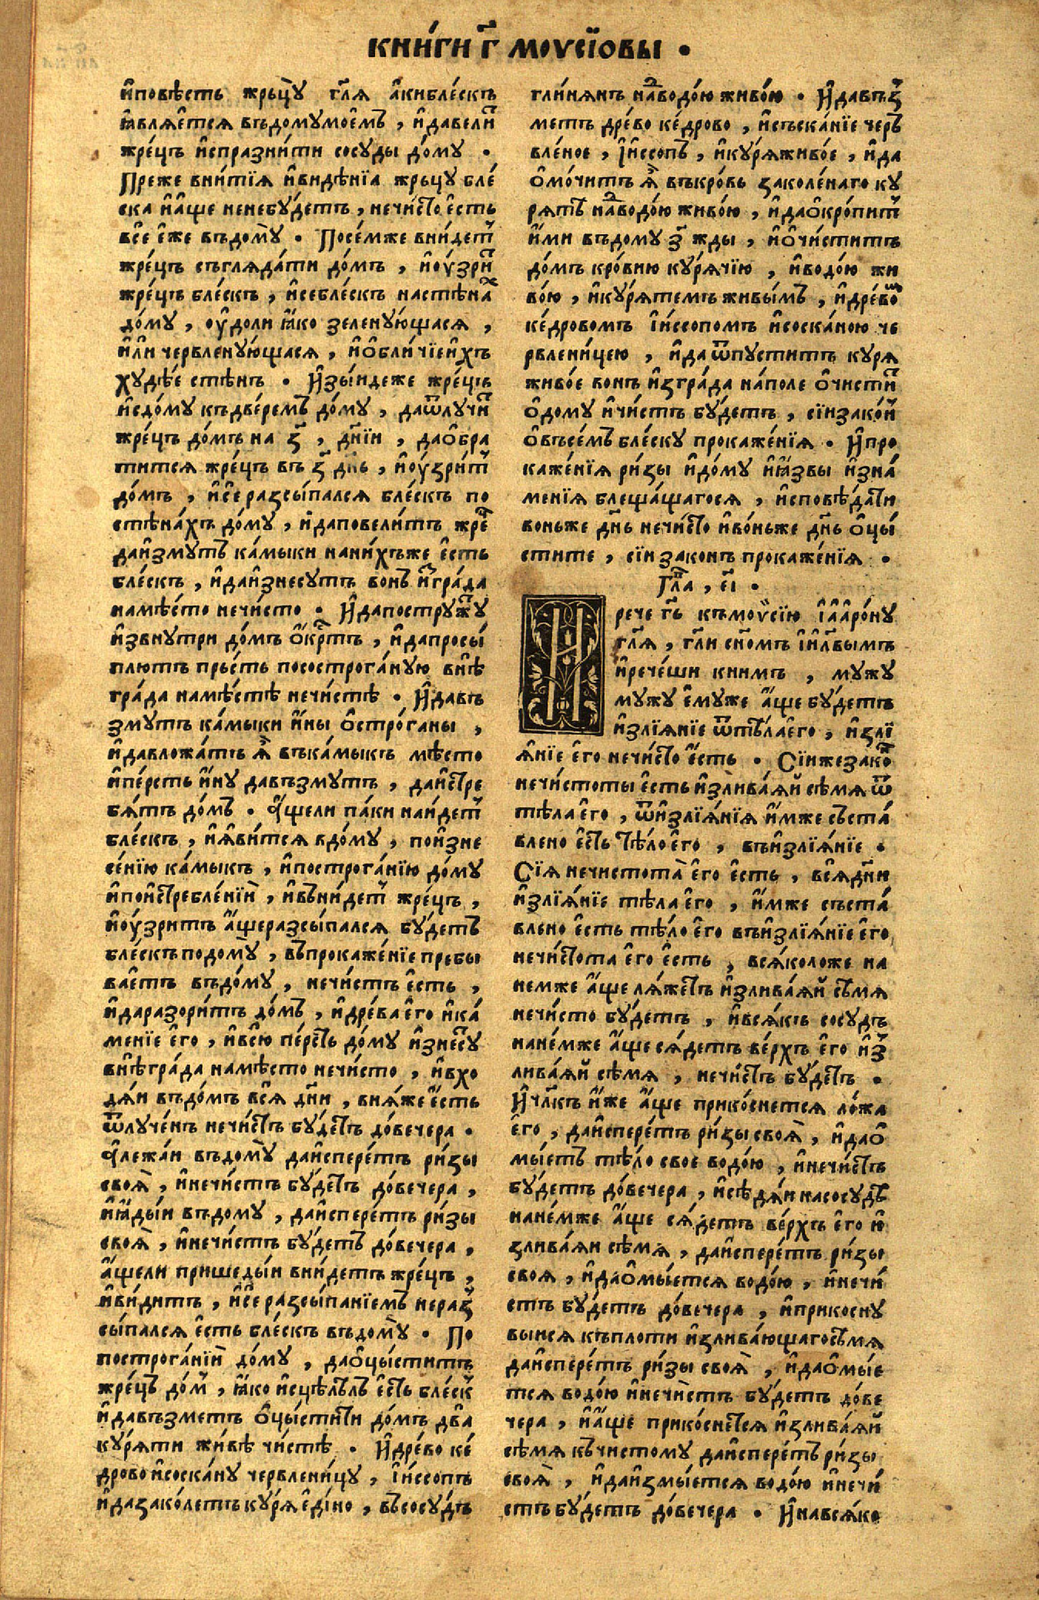 КНИ́ГИ Г҃ МОѴСІ́ОВЫ .
и҆повѣсть жрьцꙋ̀ гл҃я а҆киблескъ
ꙗ҆вля́етсѧ въдомꙋмое́мъ , и҆давели́т
жре́цъ и҆спразни́ти сосꙋ́ды до́мꙋ .
Преже вни́тїѧ и҆видѣ́нїа жрьцꙋ бле́
ска и҆а҆ще ненебꙋ́детъ , нечи́сто е҆сть
всѐ е҆же въдомꙋ̀ . Посе́мже вни́дет
жре́цъ съглѧда́ти до́мъ , и҆оу҆́зрит
жре́цъ блескъ , и҆сѐблескъ настѣна́х
до́мꙋ , оу҆до́ли ꙗ҆́ко зеленꙋ́ющасѧ ,
и҆лѝ червленꙋ́ющасѧ , и҆ѻ҆бли́чїеи҆́хъ
хꙋдѣ́е стѣ́нъ . И҆зы́идеже жре́цъ
и҆сдо́мꙋ къдве́ремъ до́мꙋ , даѿлꙋчи́т
жре́цъ до́мъ на з҃ , дн҃їи , даѻ҆бра
ти́тсѧ жре́цъ въ з҃ дн҃ь , и҆оу҆́зрит
до́мъ , и҆сѐ разсы́палсѧ бле́скъ по
стѣна́хъ до́мꙋ , и҆даповели́тъ жре́ц
даи҆́змꙋтъ ка́мыки нани́хъже е҆́сть
бле́скъ , и҆даи҆знесꙋ́тъ во́нъ и҆з̾гра́да
намѣ́сто нечи́сто . И҆дапострꙋ́жꙋ
и҆звнꙋтрѝ до́мъ ѻ҆́крстъ , и҆дапросы́
плютъ прьсть посострога́нꙋю внѣ̀
гра́да намѣ́стѣ нечи́стѣ . И҆давъ
змꙋтъ ка́мыки и҆́ны ѻ҆стро́ганы ,
и҆давложа́тъ ѧ҆̀ въка́мыкъ мѣ́сто
и҆пе́рсть и҆́нꙋ давъзмꙋ́тъ , даи҆стре
бѧ́тъ до́мъ . А҆́щели па́ки наи́дет
бле́скъ , и҆ꙗ҆ви́тсѧ вдо́мꙋ , пои҆зне
се́нїю ка́мыкъ , и҆построга́нїю до́мꙋ
и҆пои҆стребле́нїи , и҆въни́дет жре́цъ ,
и҆оу҆́зритъ а҆́щеразсы́палсѧ бꙋ́детъ
бле́скъ подомꙋ̀ , въпрокаже́нїе пребы
ва́етъ въдо́мꙋ , нечи́стъ е҆́сть ,
и҆даразори́тъ до́мъ , и҆дре́ва е҆го̀ и҆ка́
менїе е҆го̀ , и҆всю̀ пе́рсть до́мꙋ и҆знесꙋ́
внѣ̀гра́да намѣ́сто нечи́сто , и҆вхо
дѧ́и въдо́мъ всѧ̀ дн҃и , внѧ́же е҆́сть
ѿлꙋче́нъ нечи́стъ бꙋ́детъ до́вечера .
А҆лежа́и въдомꙋ̀ даи҆спере́тъ ри́зы
своѧ̀ , и҆нечи́стъ бꙋ́детъ до́вечера ,
и҆ꙗ҆ды́и въдомꙋ , даи҆спере́тъ ри́зы
своѧ̀ , и҆нечи́стъ бꙋ́детъ до́вечера ,
а҆́щели прише́дыи вни́детъ жре́цъ ,
и҆ви́дитъ , и҆сѐ разсы́панїемъ нераз
сы́палсѧ е҆сть бле́скъ въдомꙋ̀ . По
построга́нїи до́мꙋ , даѻ҆цы́ститъ
жре́цъ до́м , ꙗ҆́ко и҆сцѣлѣ̀лъ е҆́сть бле́ск
и҆давъзметъ ѻ҆цы́стити до́мъ два̀
кꙋрѧ́ти жи́вѣ чи́стѣ . И҆дре́во ке́
дрово и҆соска́нꙋ червлени́цꙋ , і҆и́ссопъ
и҆дазако́летъ кꙋрѧ е҆ди́но , въсосꙋ́дъ
гли́нѧнъ на́дводо́ю живо́ю . И҆давъз
метъ дре́во ке́дрово , и҆съска́нїе черв
вле́ное , і҆и́ссопъ , и҆кꙋ́рѧживо́е , и҆да
ѻ҆мо́читъ ѧ҆̀ въкро́вь заколе́наго кꙋ
рѧтъ надводо́ю живо́ю , и҆даѻ҆кро́пит
и҆́ми въдомꙋ з҃ жды , и҆ѻ҆чи́ститъ
до́мъ кро́вию кꙋрѧ́чїю , и҆водо́ю жи
во́ю , и҆кꙋрѧ́темъ живы́мъ , и҆дре́вом
ке́дровомъ і҆и́ссопомъ и҆соска́ною че
рвлени́цею , и҆даѿпꙋ́ститъ кꙋрѧ̀
живо́е вонъ и҆згра́да на́поле ѻ҆чи́стит
ѻ҆дому и҆чи́стъ бꙋ́детъ , сїизако́н
ѻ҆въсе́мъ бле́скꙋ прокаже́нїѧ . И҆про
каже́нїѧ ри́зы и҆до́мꙋ и҆ꙗ҆́звы и҆зна́
менїѧ блеща́щагосѧ , и҆сповѣ́дати
воньже дн҃ь нечи́сто и҆во́ньже дн҃ь ѻ҆цы́
стите , сїизако́нъ прокаже́нїѧ .
Гла , е҃і .
И҆рече гь҃ къмоѷсі́ю і҆а҆аро́нꙋ
гл҃ѧ , гл҃и сн҃омъ і҆и҃лвымъ
и҆рече́ши книмъ , мꙋ́жꙋ
мꙋжꙋ е҆мꙋже а҆́ще бꙋ́детъ
и҆злїѧ́нїе ѿтѣ́лае҆го̀ , и҆злї
ѧ́нїе е҆го̀ нечи́сто е҆́сть . Сїи́жезако́н
нечистоты̀ е҆́сть и҆злива́ѧй сѣ́мѧ ѿ
тѣ́ла е҆го̀ , ѿи҆злїѧ́нїѧ и҆́мже съста́
влено е҆́сть тѣ́ло е҆го̀ , въи҆злїѧ́нїе .
Сїѧ̀ нечистота̀ е҆го̀ е҆́сть , всѧдн҃и
и҆злїѧ́нїе тѣ́ла е҆го̀ , и҆́мже съста́
влено е҆сть тѣ́ло е҆го̀ въи҆злїѧ́нїе е҆го̀
нечистота̀ е҆го̀ е҆́сть , всѧ́коложе на
немже а҆́ще лѧ́жетъ и҆злива́ѧй сѣмѧ
нечи́сто бꙋ́детъ , и҆всѧ́къ сосꙋ́дъ
нане́мже а҆́ще сѧ́детъ ве́рхъ е҆го̀ и҆з
лива́ѧй сѣ́мѧ , нечи́стъ бꙋ́детъ .
И҆чл҃къ и҆́же а҆́ще прико́снетсѧ ло́жа
е҆го̀ , даи҆спере́тъ ри́зы своѧ̀ , и҆даѻ҆
мы́етъ тѣ́ло свое водо́ю , и҆нечи́стъ
бꙋ́детъ до́вечера , и҆сѣдѧ́и насосꙋ́дѣ
нане́мже а҆́ще сѧ́детъ ве́рхъ е҆го̀ и҆
злива́ѧи сѣ́мѧ , даи҆спере́тъ ри́зы
своѧ , и҆даѻ҆мы́етсѧ водо́ю , и҆нечи́
стъ бꙋ́детъ до́вечера , и҆прикосну
выисѧ къпло́ти и҆злива́ющагосѣ́мѧ
даи҆спере́тъ ри́зы своѧ̀ , и҆даѻ҆мы́е
тсѧ водо́ю и҆нечи́стъ бꙋ́детъ до́ве
чера , и҆а҆́ще прико́снетсѧ и҆злива́ѧй
сѣ́мѧ къчи́стомꙋ даи҆спере́тъ ри́зы
своѧ̀ , и҆даи҆змы́етсѧ водо́ю и҆нечи́
стъ бꙋ́детъ до́вечера . И҆навсѧ́ко